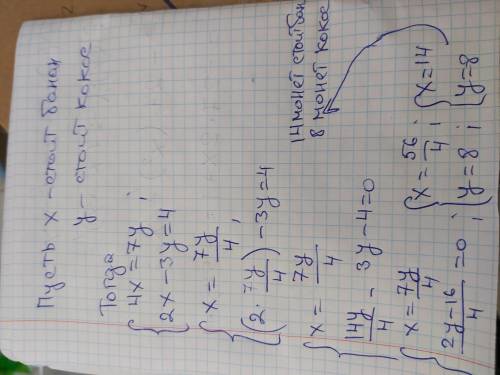 Пусть x - стоит банан
y - стоит кокос
Тогда
{ 4x = 7y ;
2x - 3y = 4
{ x = 7y/4 ;
(2 · 7y/4) - 3y = 4
{ x = 7y/4
14y/4 - 3y - 4 = 0
{ x = 7y/4
2y-16/4 = 0 ;
{ x = 56/4 ;
y = 8 ;
{ x = 14
y = 8
14 монет стоит банан
8 монет кокос